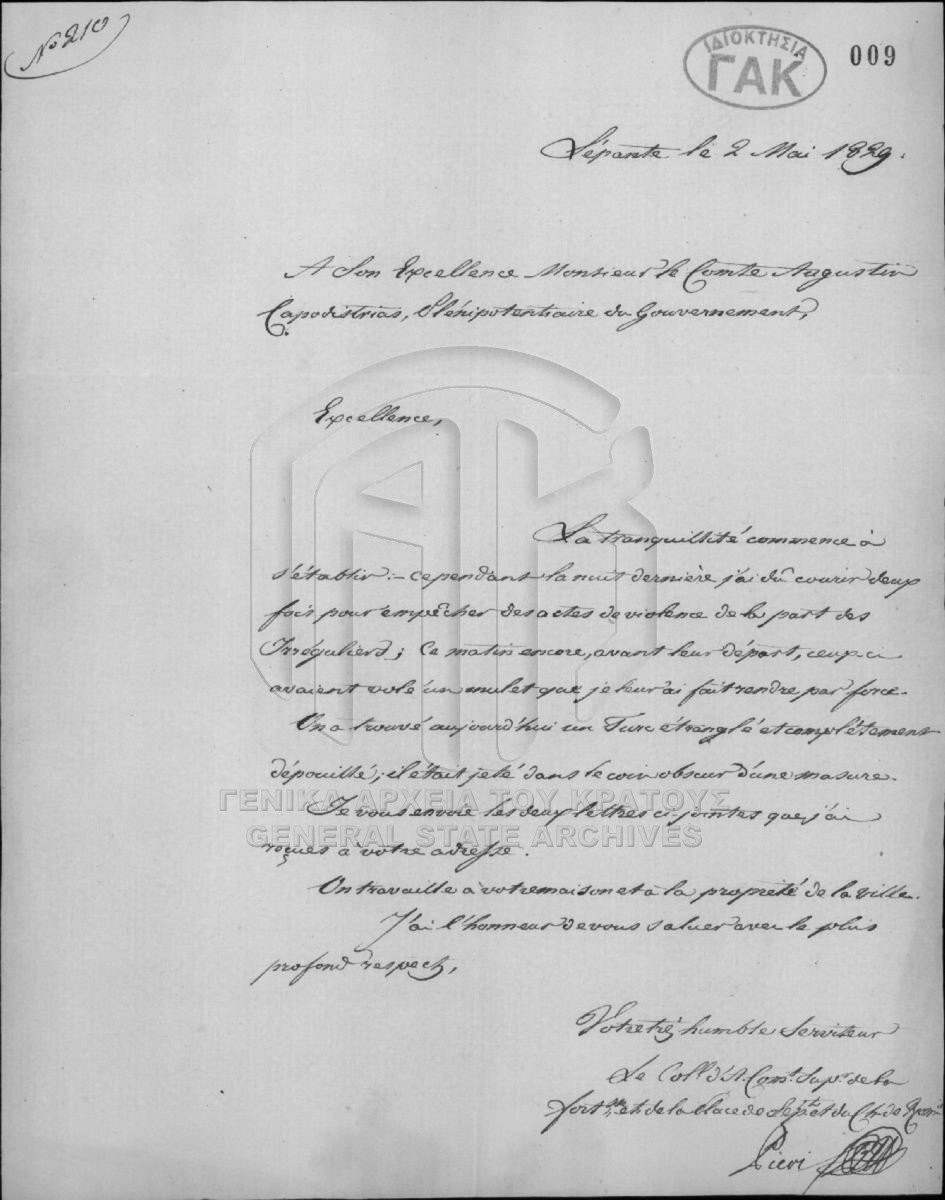 No 210
ΙΔΙΟΚΤΗΣΙΑ
ΓΑΚ
009
Lépante le 2 Mai 1829.
A Son Excellence Monsieur le Comte Augustin
Capodistrias, Plénipotentiaire du Gouvernement,
Excellence,
La tranquillité commence à
s'établir :- cependant la nuit dernière j'ai dû courir deux
fois pour empêcher des actes de violence de la part des
Irréguliers ; ce matin encore, avant leur départ, ceux ci
avaient volé un mulet que je leur ai fait rendre par force.
On a trouvé aujourd'hui un Turc étranglé et complètement
dépouillé ; il était jeté dans le coin obscur d'une masure.
ΓΕΝΙΚΑ ΑΡΧΕΙΑ ΤΟΥ ΚΡΑΤΟΥΣ
GENERAL STATE ARCHIVES
Je vous envoie les deux lettres ci jointes que j'ai
reçues à votre adresse.
On travaille à votre maison et à la propreté de la ville.
J'ai l'honneur de vous saluer avec le plus
profond respect,
Votre très humble Serviteur
Le Coll. d'A. Comt. Supr. de la
fort. et de la Place de Lépte et du Ch. de
Pieri